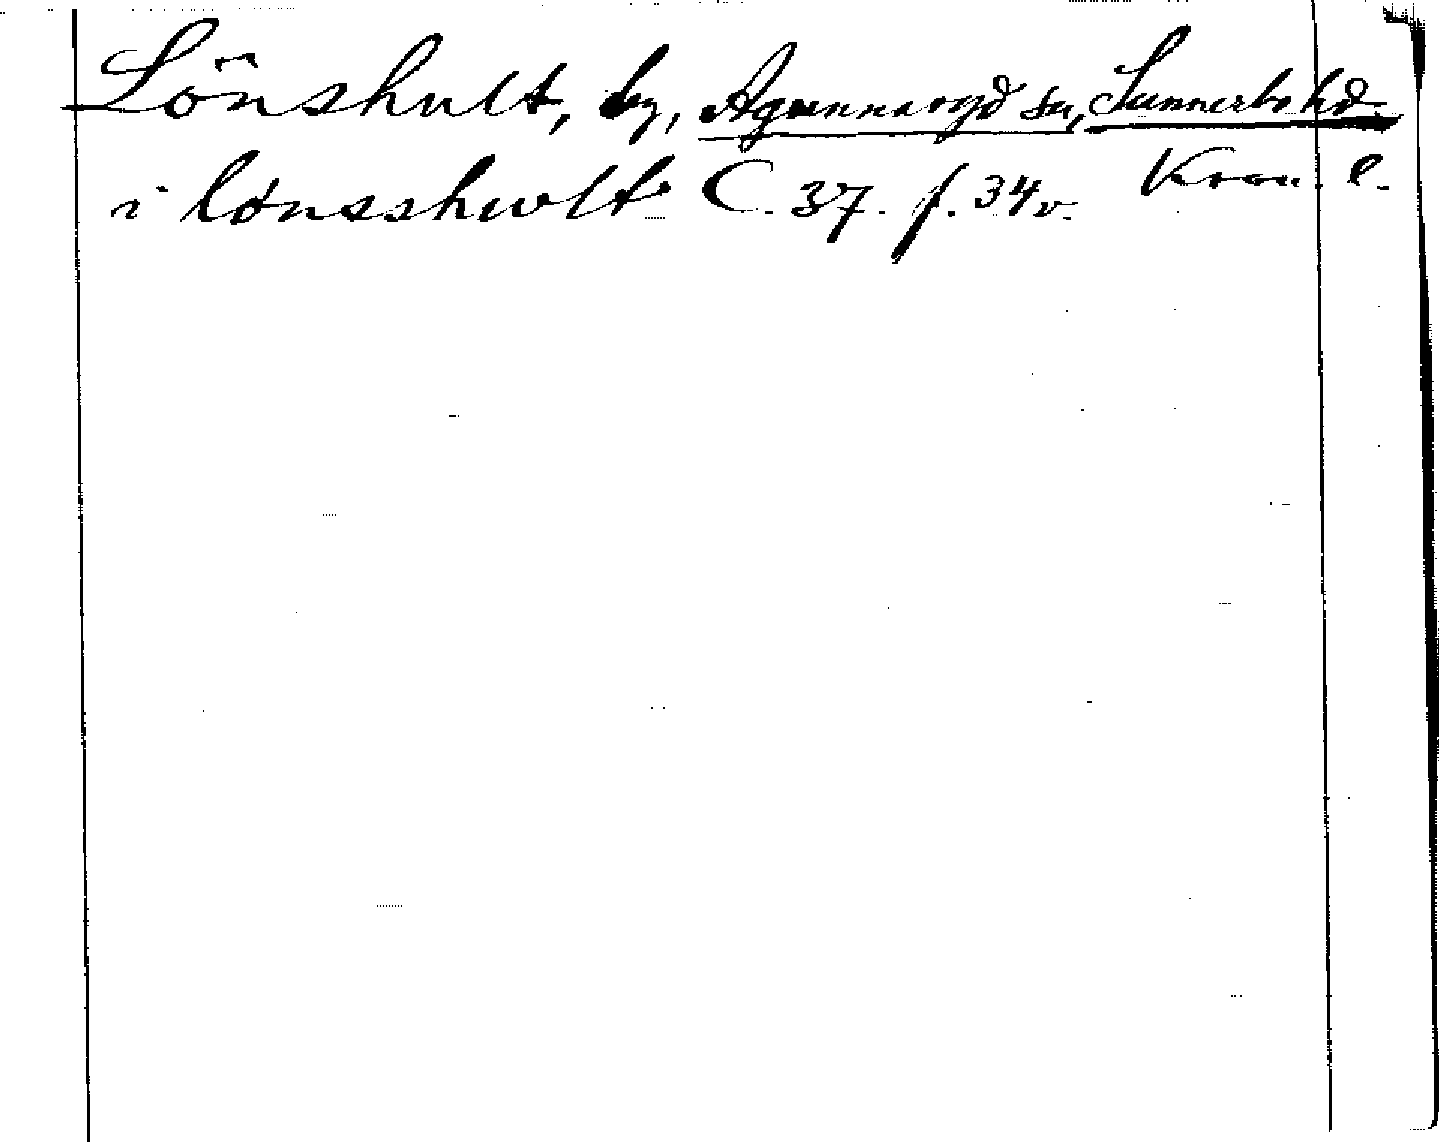 Lönshult, by, Agunnaryd sn, Sunnerbo hd.
i lönsshwlt C. 37. f. 34v. Kron. l.